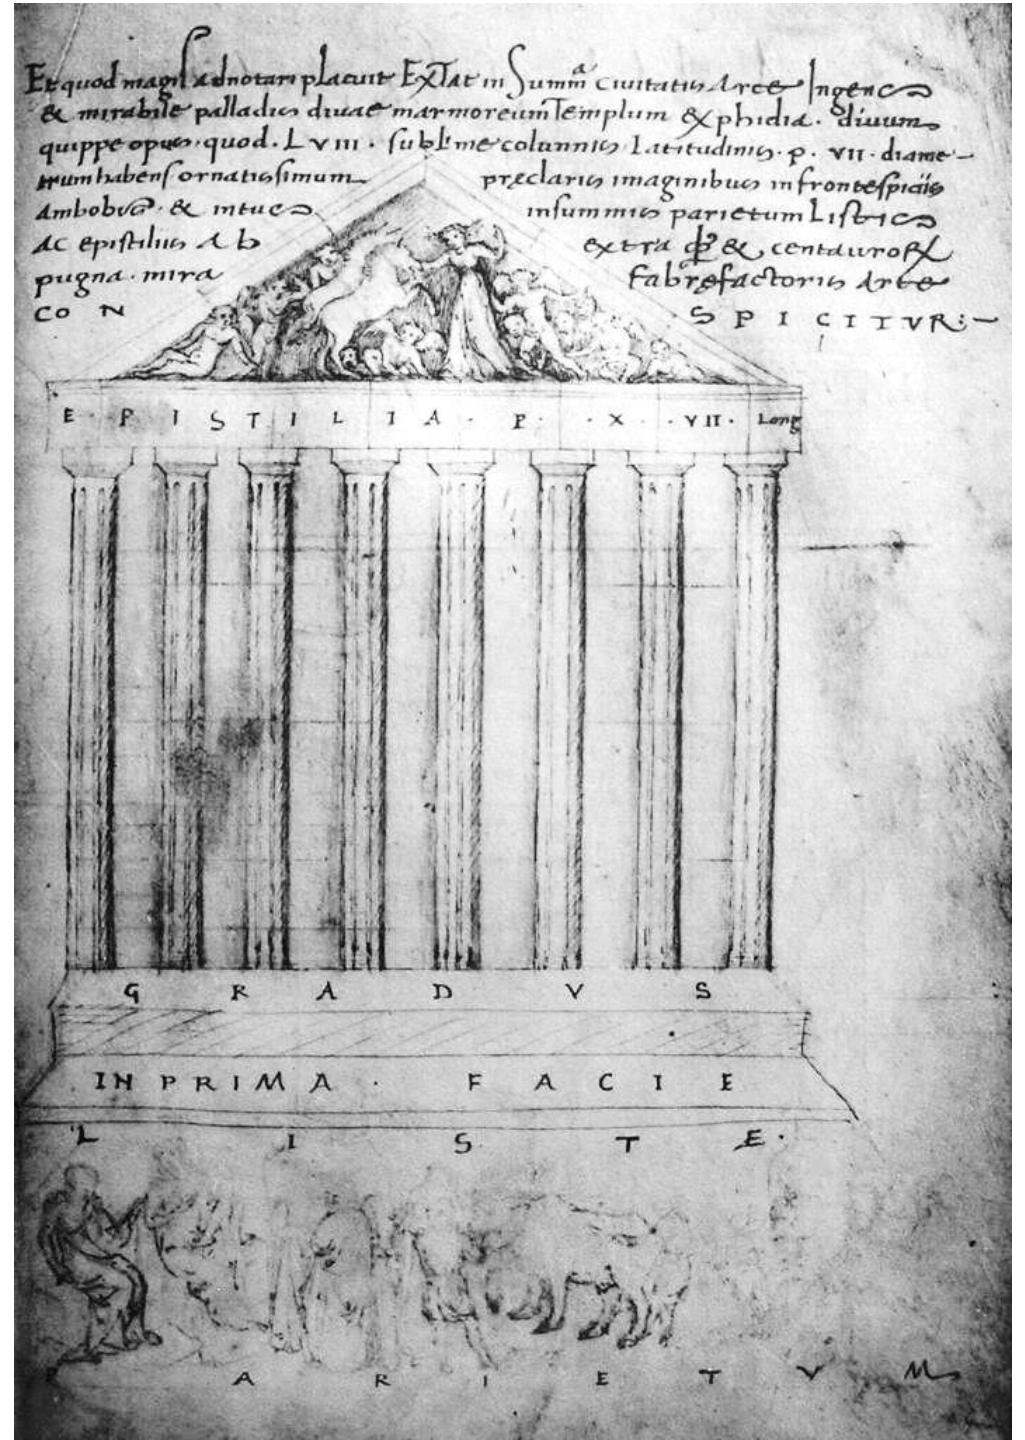 Et quod magis adnotari placuit Extat in Summa Civitatis Arce Ingens
& mirabile palladis divae marmoreum Templum & phidia. divum
quippe opus. quod. LVIII. sublime colunnis Latitudinis. p. VII. diame-
trum habens ornatissimum preclaris imaginibus in frontespiciis
Ambobus & intus in summis parietum Listis
Ac epistiliis Ab extra & centauro℞
pugna. mira Fabrefactoris Arte
CON SPICITVR:-
EPISTILIA. P. X. VII. Long
GRADVS
IN PRIMA. FACIE
LISTE.
PARIETVM